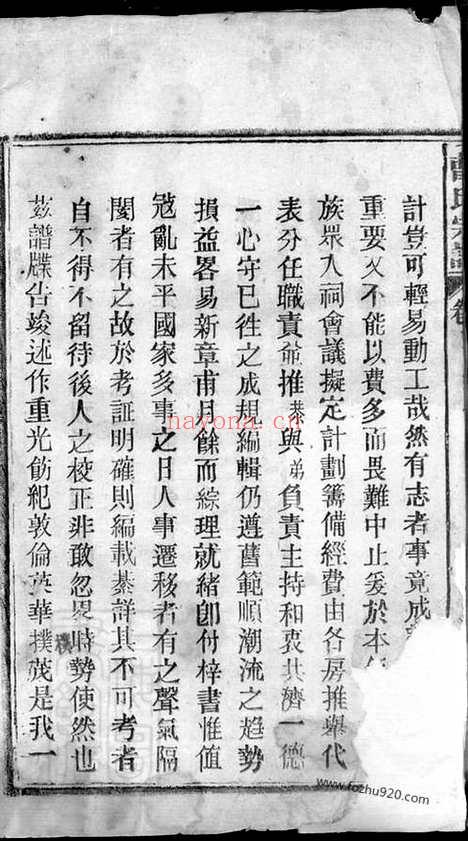 曹氏宗譜 卷
計豈可輕易動工哉然有志者事竟成
重要又不能以費多而畏難中止爰於本
族眾入祠會議擬定計劃籌備經費由各房推舉代
表分任職責僉推恭與弟負責主持和衷共濟一德
一心守已徃之成規編輯仍遵舊範順潮流之趋勢
損益畧易新章甫月餘而綜理就緒卽付梓書惟值
寇亂未平國家多事之日人事遷移者有之聲氣隔
閡者有之故於考証明確則編載綦詳其不可考者
自不得不留待後人之校正非敢忽畧時勢使然也
茲譜牒告竣述作重光飭紀敦倫英華撲茂是我一
樸
nayona.cn
www.fozhu920.com